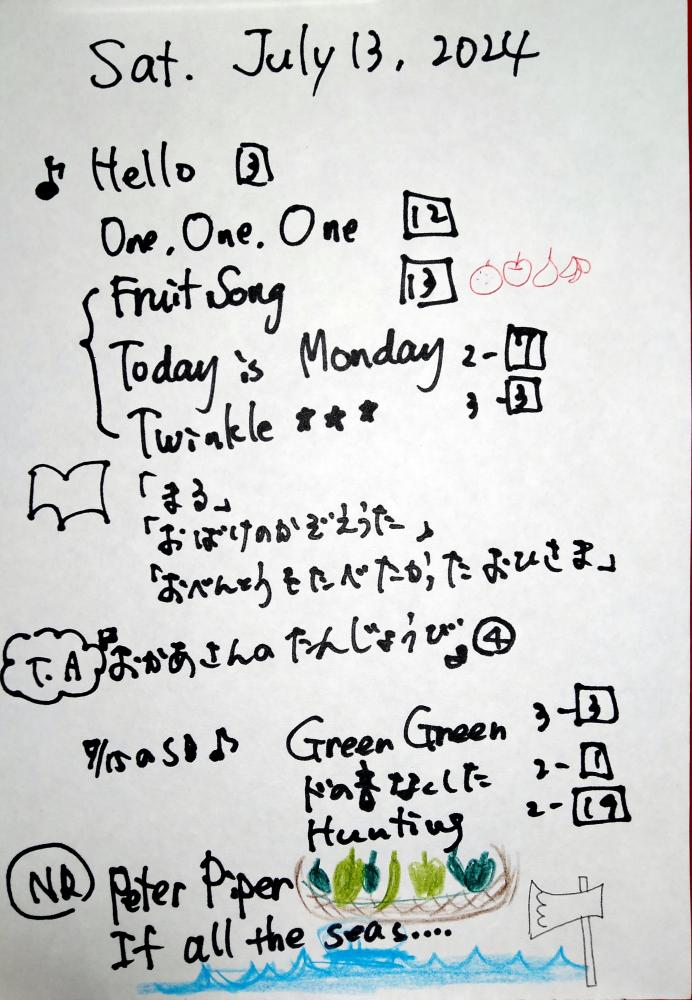 Sat. July 13, 2024
Hello 3
One, One, One 12
Fruit Song 13
Today is Monday 2-7
Twinkle ★★★ 3-3
「まる」
「おばけのかぞえうた」
「おべんとうをたべたからたおひさま」
T.A 『おかあさんのたんじょうび』④
7/15のSB♪ Green Green 3-3
ドの音なくした 2-1
Hunting 2-19
NR Peter Piper
If all the seas....